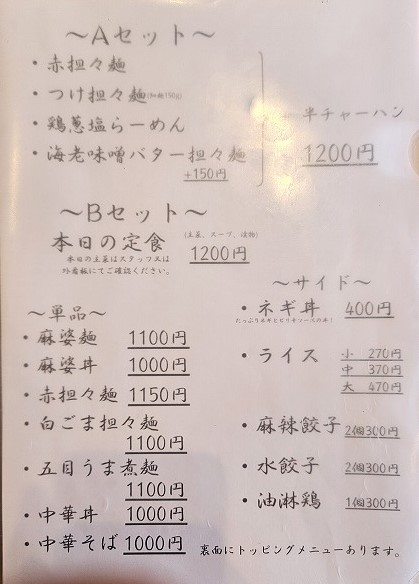 ～Aセット～
・赤担々麺
・つけ担々麺
・鶏葱塩らーめん
・海老味噌バター担々麺
+150円
半チャーハン
1200円
～Bセット～
本日の定食
(主菜、スープ、漬物)
1200円
本日の主菜はスタッフ又は
外看板にてご確認ください。
～単品～
・麻婆麺 1100円
・麻婆丼 1000円
・赤担々麺 1150円
・白ごま担々麺
1100円
・五目うま煮麺
1100円
・中華丼 1000円
・中華そば 1000円
～サイド～
・ネギ丼 400円
・ライス 小 270円
中 370円
大 470円
・麻辣餃子 2個300円
・水餃子 2個300円
・油淋鶏 1個300円
裏面にトッピングメニューあります。